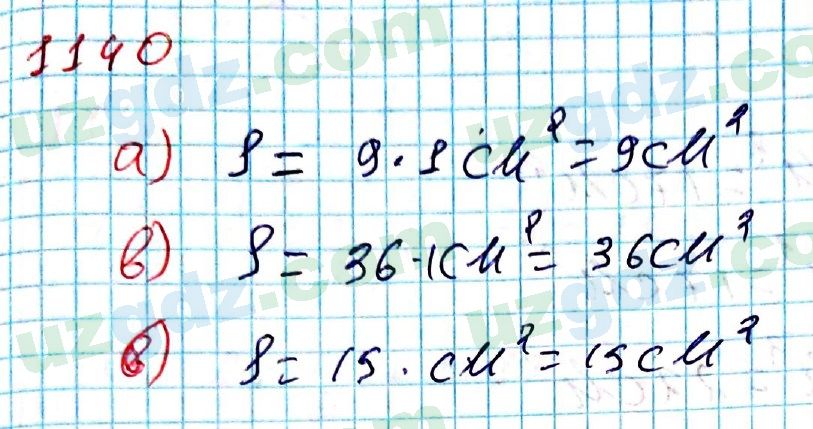 1140
а) S = 9 · 1 см² = 9 см²
в) S = 36 · 1 см² = 36 см²
в) S = 15 · см² = 15 см²
uzgdz.com